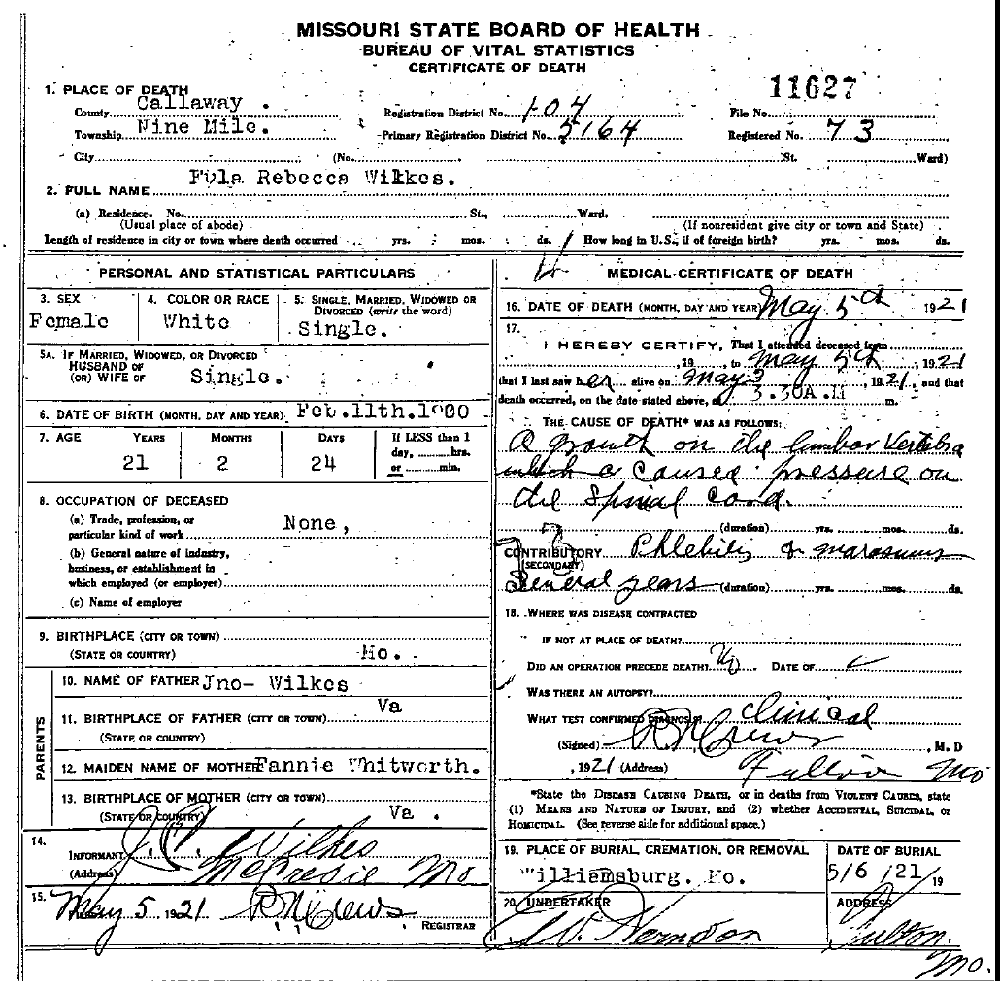 MISSOURI STATE BOARD OF HEALTH
BUREAU OF VITAL STATISTICS
CERTIFICATE OF DEATH
11627
1. PLACE OF DEATH
County Callaway. Registration District No. 104 File No.
Township Nine Mile. Primary Registration District No. 5164 Registered No. 73
City (No. St. Ward)
2. FULL NAME Eula Rebecca Wilkes.
(a) Residence. No. St., Ward.
(Usual place of abode) (If nonresident give city or town and State)
length of residence in city or town where death occurred yrs. mos. ds. How long in U.S., if of foreign birth? yrs. mos. ds.
PERSONAL AND STATISTICAL PARTICULARS
3. SEX 4. COLOR OR RACE 5. SINGLE, MARRIED, WIDOWED OR
DIVORCED (write the word)
Female White Single.
5A. IF MARRIED, WIDOWED, OR DIVORCED
HUSBAND OF
(OR) WIFE OF Single.
6. DATE OF BIRTH (MONTH, DAY AND YEAR) Feb. 11th. 1900
7. AGE YEARS MONTHS DAYS If LESS than 1
day, hrs.
or min.
21 2 24
8. OCCUPATION OF DECEASED
(a) Trade, profession, or
particular kind of work None,
(b) General nature of industry,
business, or establishment in
which employed (or employer)
(c) Name of employer
9. BIRTHPLACE (CITY OR TOWN)
(STATE OR COUNTRY) Mo.
PARENTS
10. NAME OF FATHER Jno- Wilkes
11. BIRTHPLACE OF FATHER (CITY OR TOWN) Va
(STATE OR COUNTRY)
12. MAIDEN NAME OF MOTHER Fannie Whitworth.
13. BIRTHPLACE OF MOTHER (CITY OR TOWN)
(STATE OR COUNTRY) Va.
14.
INFORMANT J. C. Wilkes
(Address) McCredie Mo
15.
May 5, 1921 R N Crews
REGISTRAR
MEDICAL CERTIFICATE OF DEATH
16. DATE OF DEATH (MONTH, DAY AND YEAR) May 5th 1921
17.
I HEREBY CERTIFY, That I attended deceased from
, 19 , to May 5th , 1921
that I last saw her alive on May 3 , 1921, and that
death occurred, on the date stated above, at 3.30A.M m.
THE CAUSE OF DEATH* WAS AS FOLLOWS:
A growth on the lumbar Vertebra
which a caused pressure on
the Spinal cord.
(duration) yrs. mos. ds.
CONTRIBUTORY Phlebitis or marasmus
(SECONDARY)
Several years (duration) yrs. mos. ds.
18. WHERE WAS DISEASE CONTRACTED
IF NOT AT PLACE OF DEATH?
DID AN OPERATION PRECEDE DEATH? No DATE OF
WAS THERE AN AUTOPSY?
WHAT TEST CONFIRMED DIAGNOSIS? Clinical
(Signed) R N Crews , M. D
, 1921 (Address) Fulton Mo
*State the DISEASE CAUSING DEATH, or in deaths from VIOLENT CAUSES, state
(1) MEANS AND NATURE OF INJURY, and (2) whether ACCIDENTAL, SUICIDAL, or
HOMICIDAL. (See reverse side for additional space.)
19. PLACE OF BURIAL, CREMATION, OR REMOVAL DATE OF BURIAL
Williamsburg. Mo. 5/6 /21 19
20. UNDERTAKER ADDRESS
Herndon Fulton
Mo.